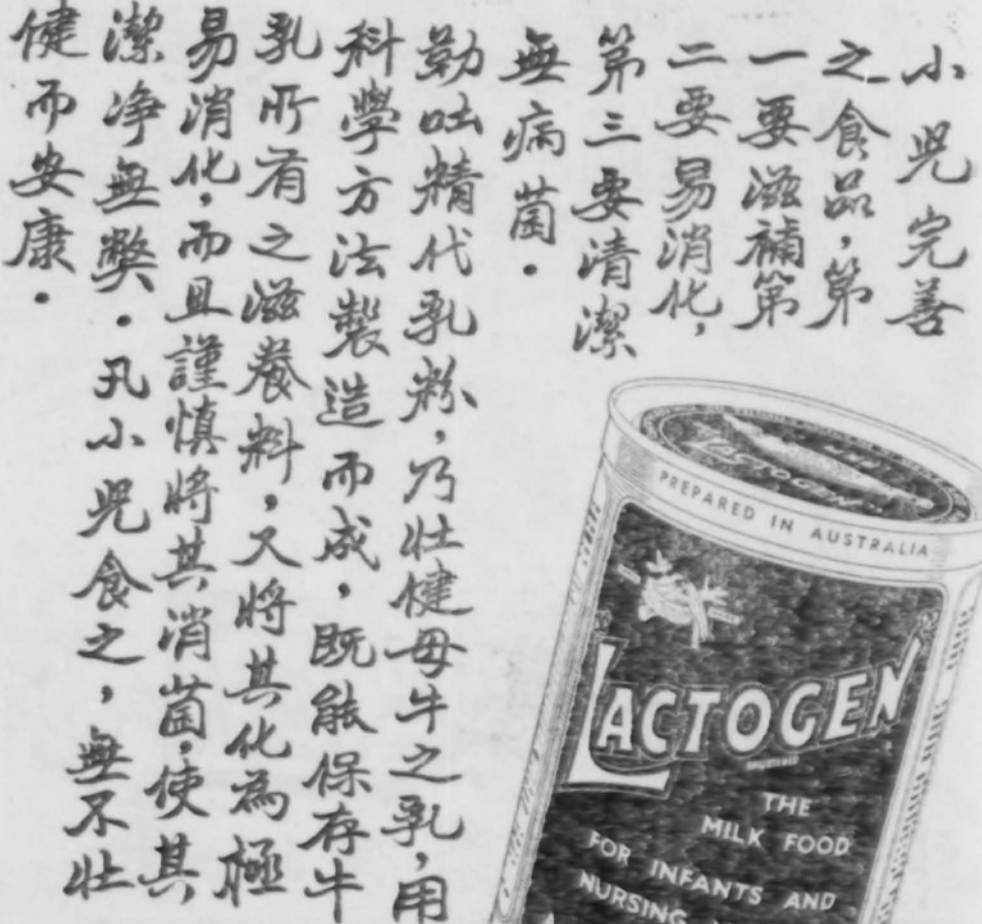 小兒完善
之食品，第
一要滋補第
二要易消化，
第三要清潔
無病菌．
勒吐精代乳粉，乃壯健母牛之乳，用
科學方法製造而成，既能保存牛
乳所有之滋養料，又將其化為極
易消化，而且謹慎將其消菌，使其
潔净無弊．凡小兒食之，無不壯
健而安康．
LACTOGEN
PREPARED IN AUSTRALIA
LACTOGEN
THE
MILK FOOD
FOR INFANTS AND
NURSING